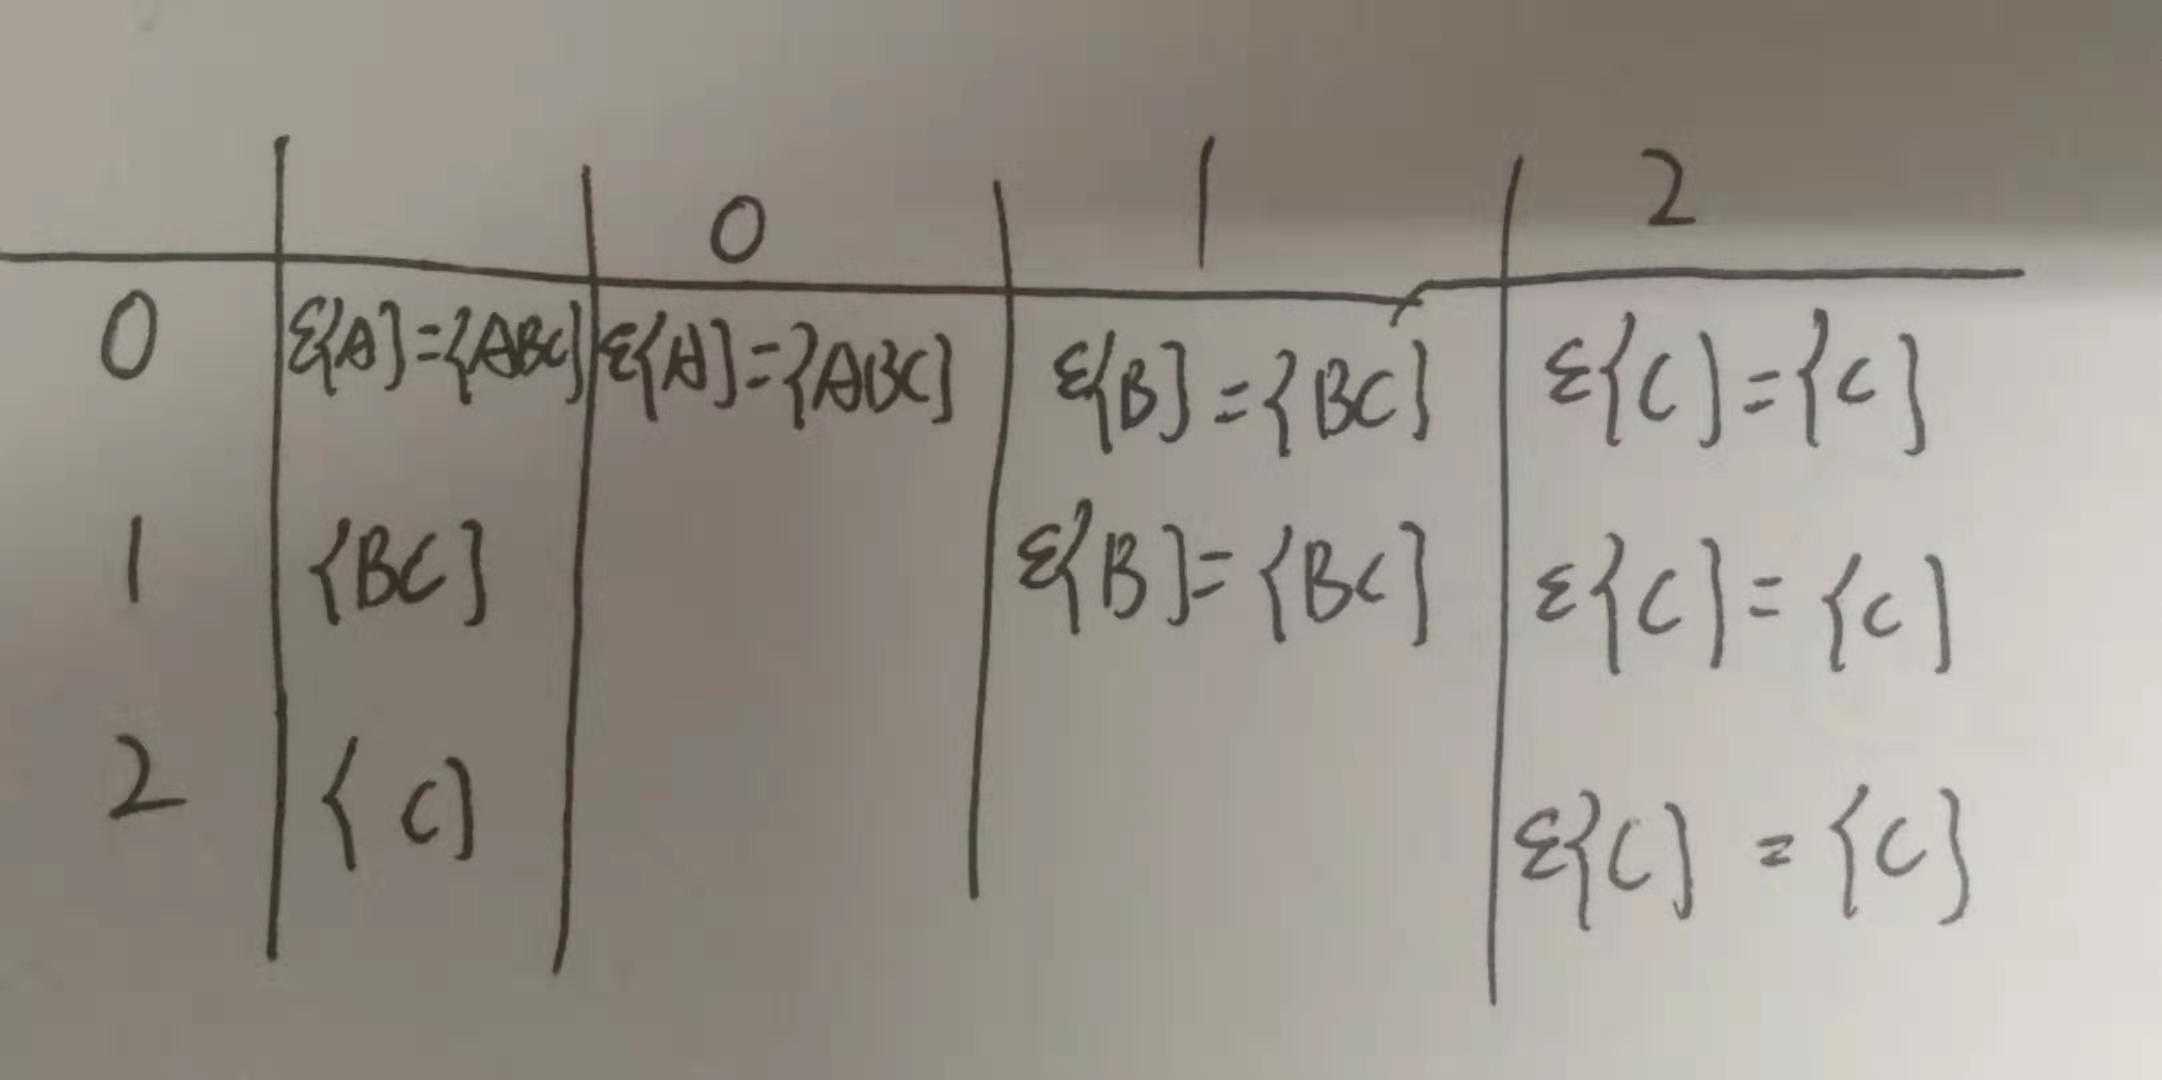 0 1 2
0 ε{A}={ABC} ε{A}={ABC} ε{B}={BC} ε{C}={C}
1 {BC} ε{B}={BC} ε{C}={C}
2 {C} ε{C}={C}